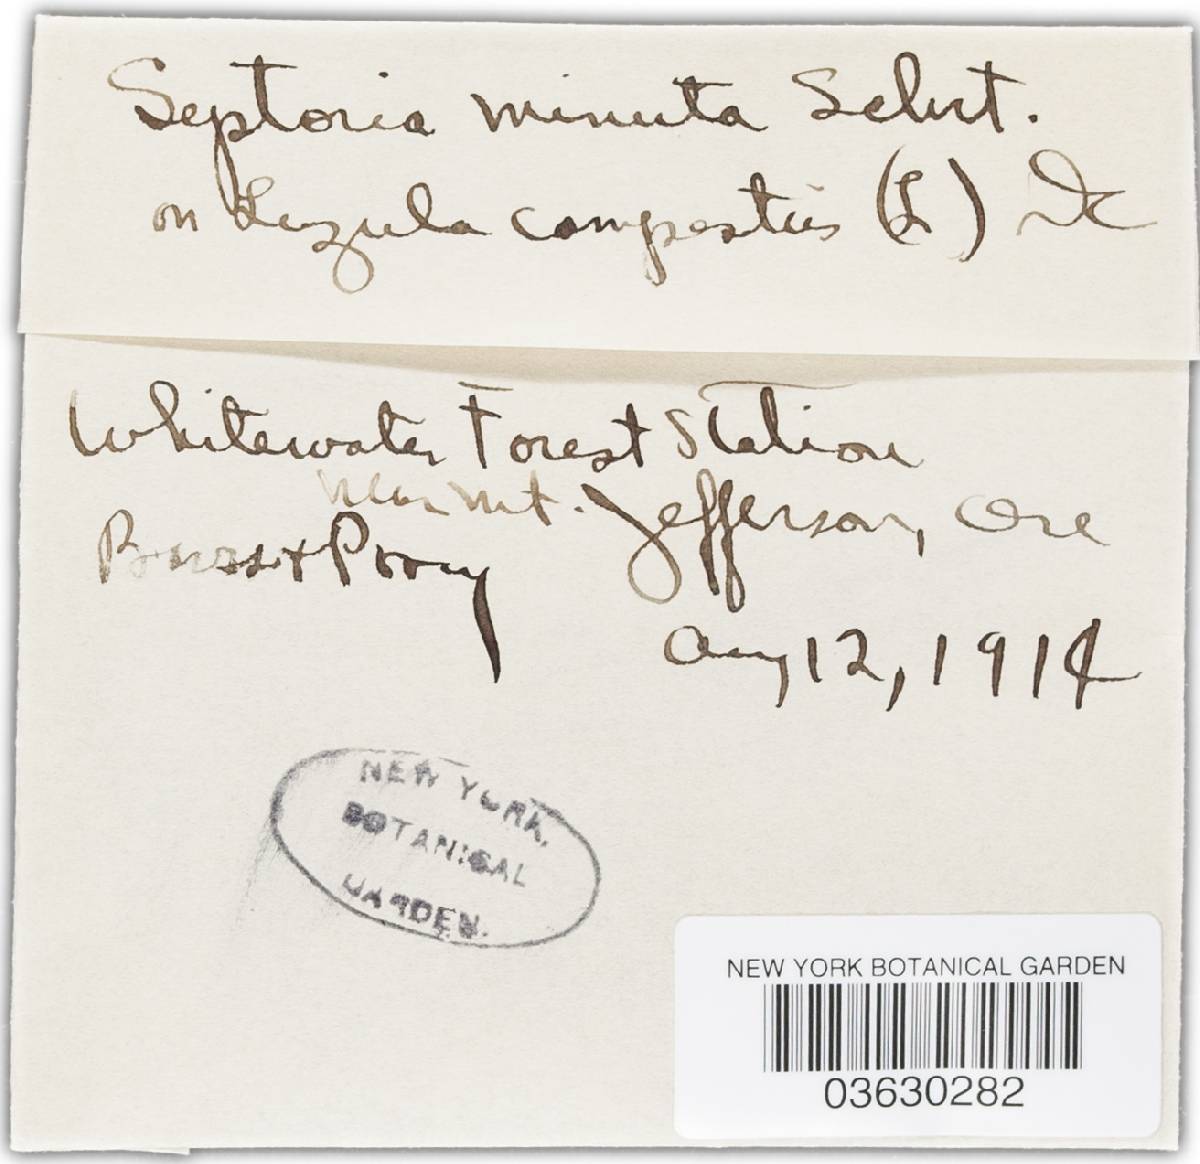 Septoria minuta Schrt.
on Luzula campestris (L) DC
Whitewater Forest Station
near Mt. Jefferson, Ore
Aug 12, 1914
NEW YORK
BOTANICAL
GARDEN.
NEW YORK BOTANICAL GARDEN
03630282